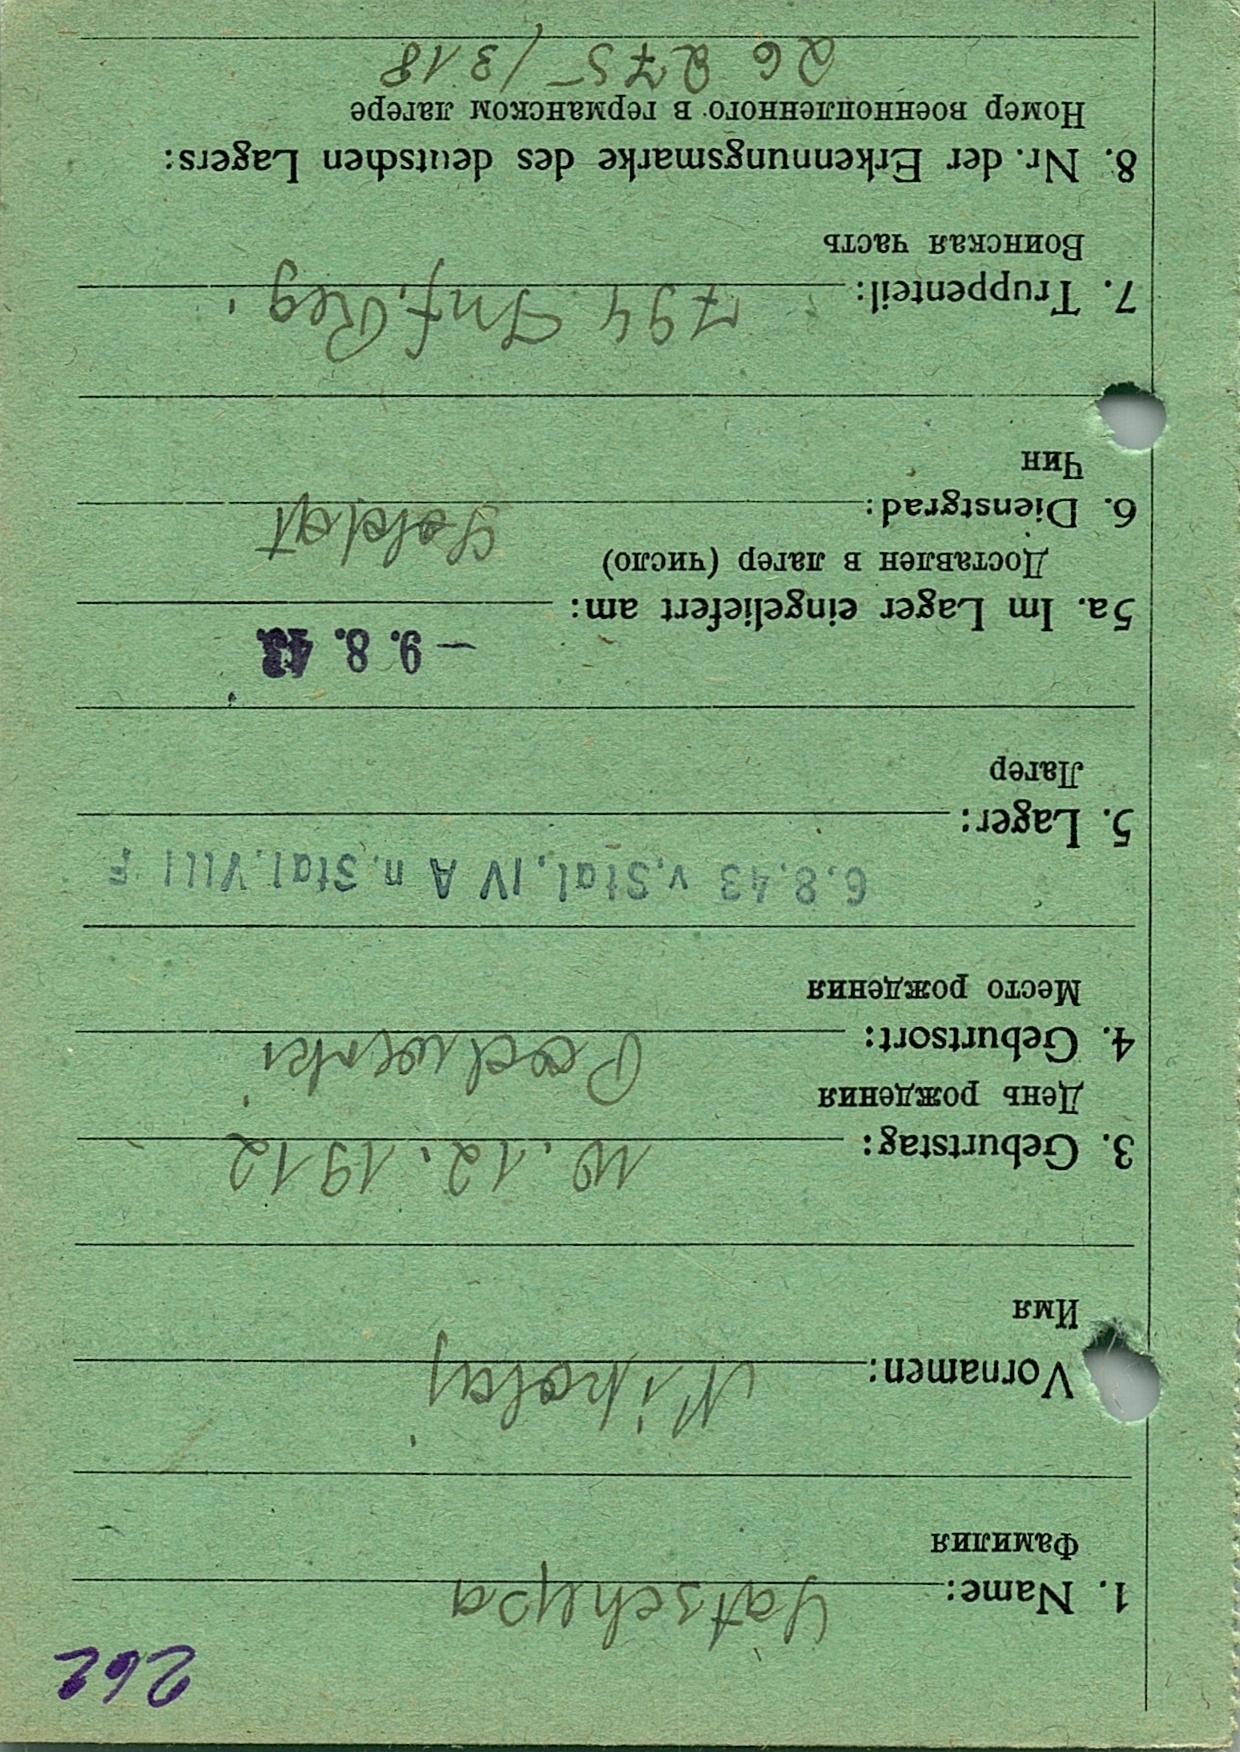 262
1. Name: Satschepa
Фамилия
Vornamen: Nikolaj
Имя
3. Geburtstag: 10.12.1912
День рождения
4. Geburtsort:
Место рождения
6.8.43 v.Stal.IV A n.Stal.VIII F
5. Lager:
Лагер
– 9. 8. 43
5a. Im Lager eingeliefert am:
Доставлен в лагер (число)
6. Dienstgrad: Soldat
Чин
7. Truppenteil: 794 Inf. Reg.
Воинская часть
8. Nr. der Erkennungsmarke des deutschen Lagers:
Номер военнопленного в германском лагере
26 275 / 318